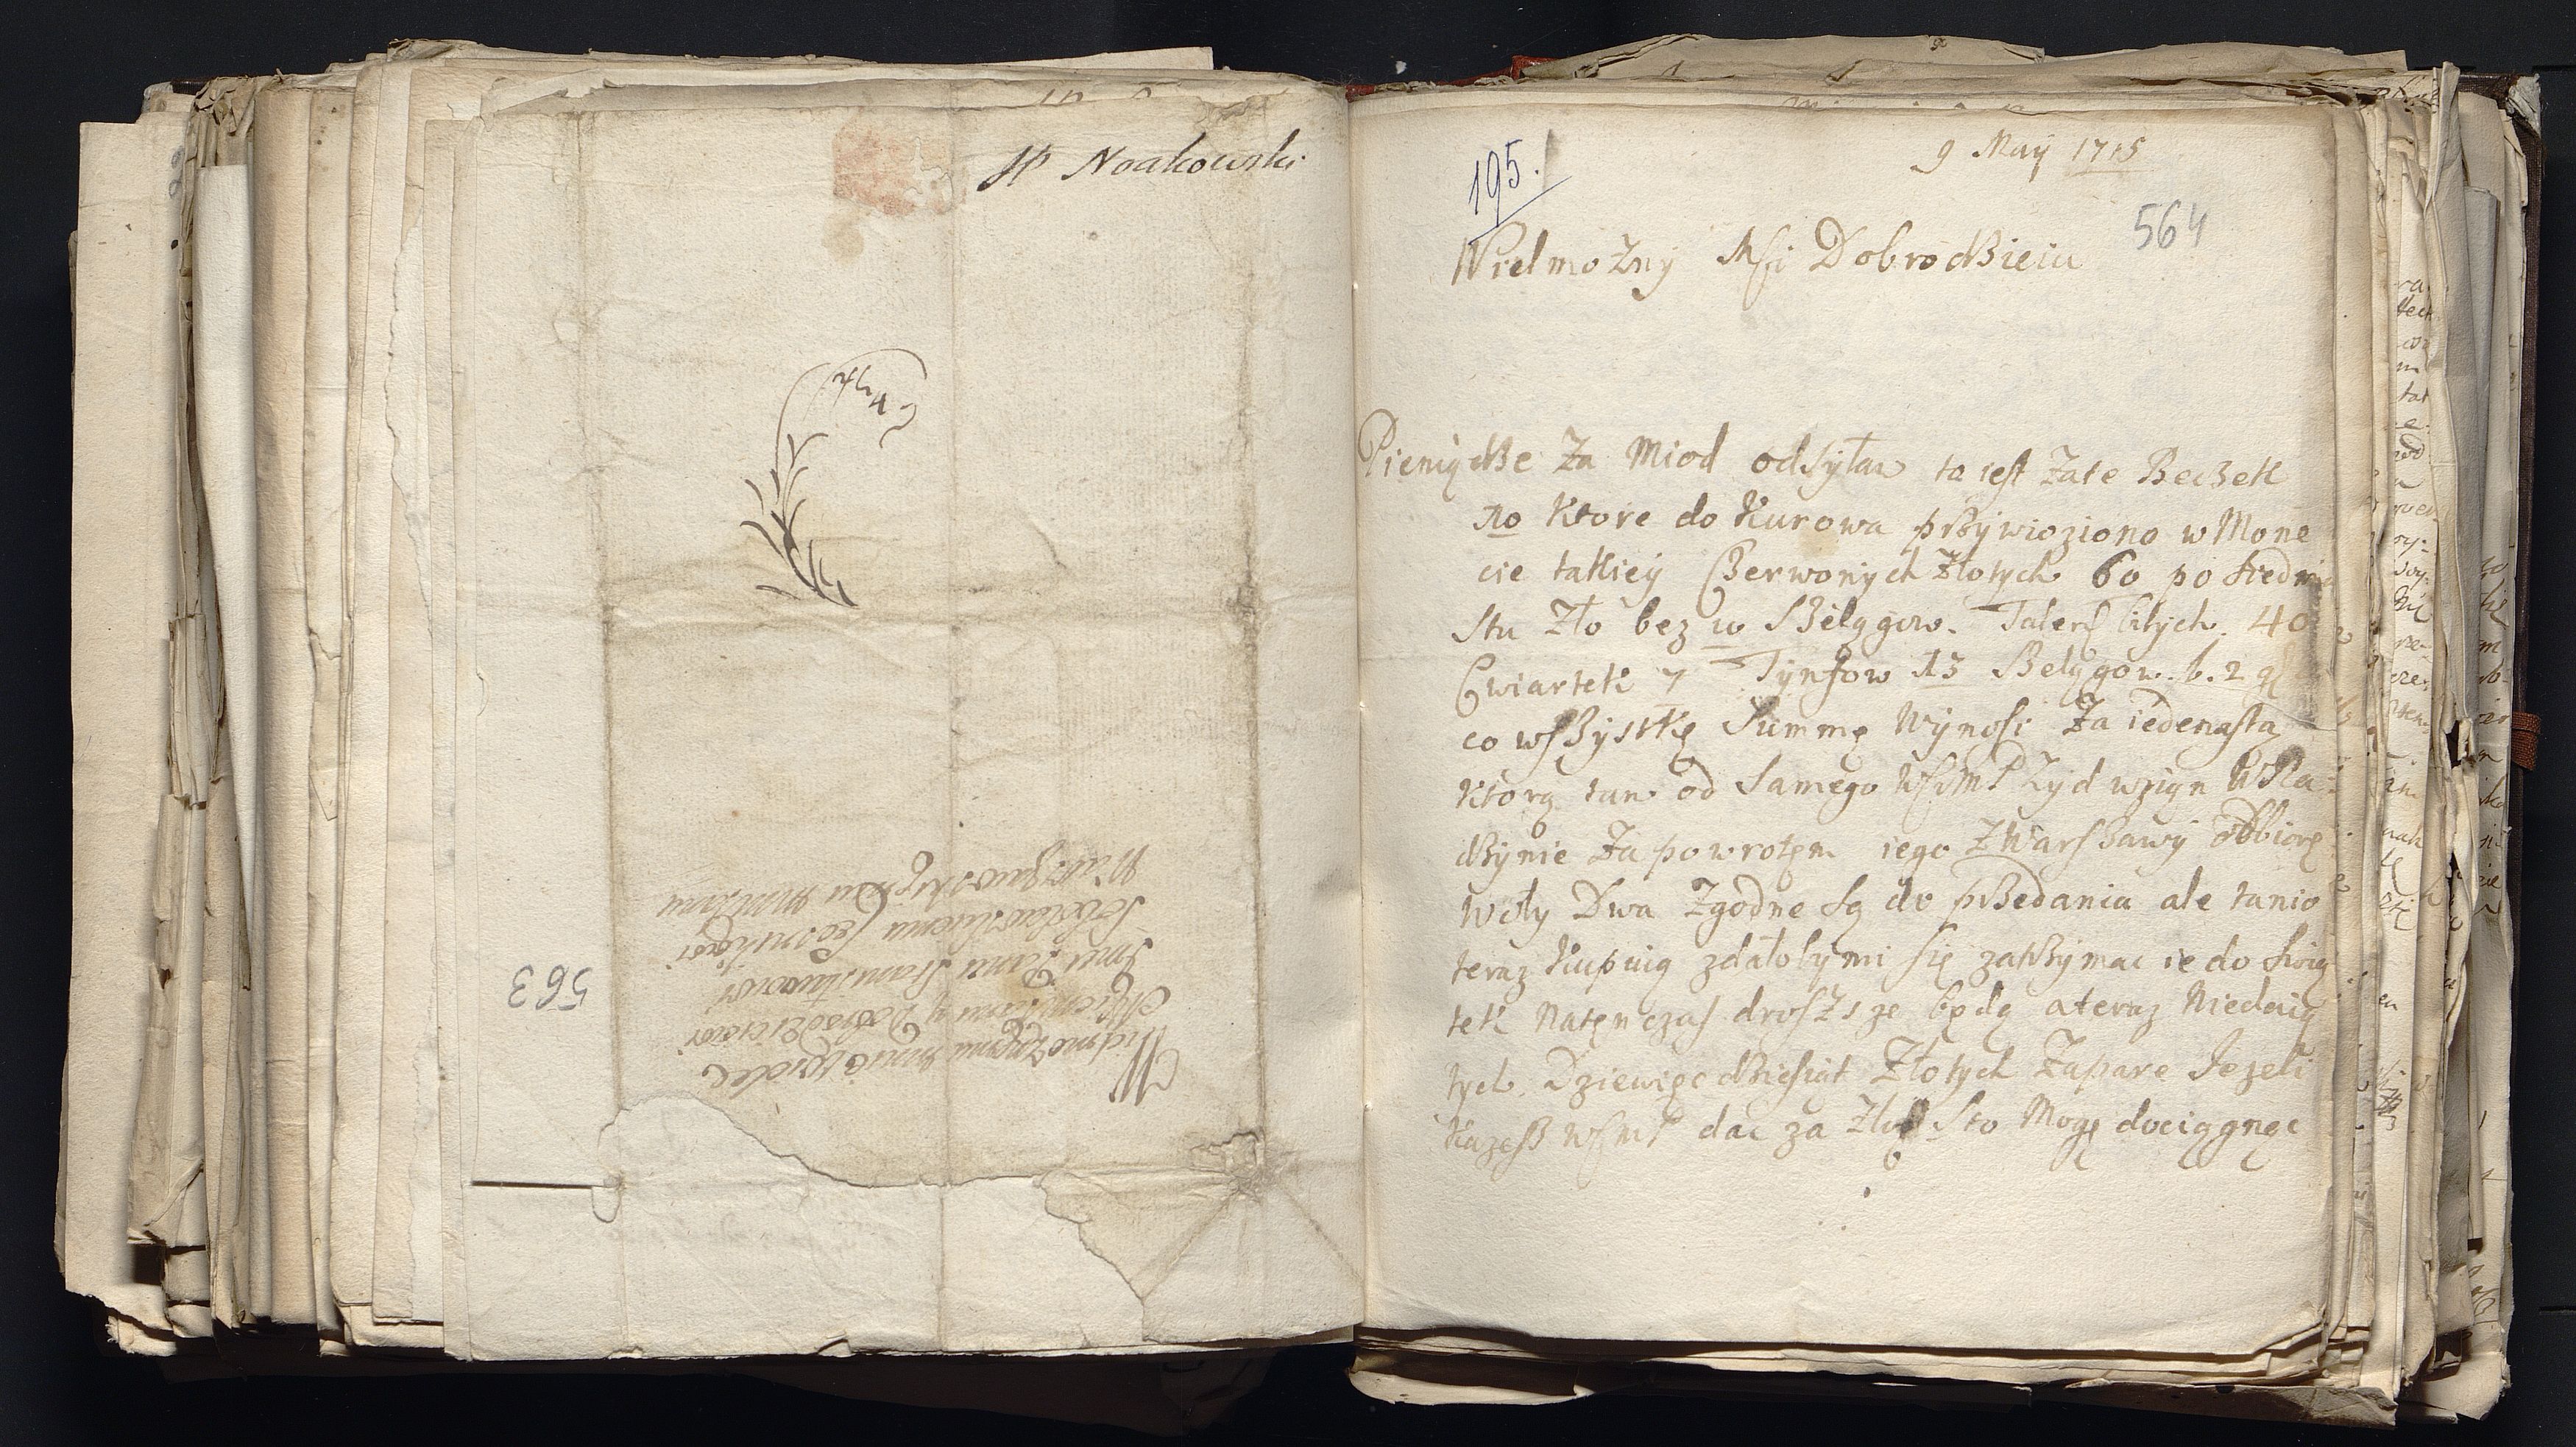 JP Noakowski
Wielmożnemu mnie wielce
Mściwemu Panu y Dobrodzieiowi
Jmci Panu Stanisławowi
563
9 Maÿ 1715
195.
564
Wielmożnÿ Mści Dobrodzieiu
Pieniądze Za Miod odsyłam to iest Zate Beczek
10 Ktore do Kurowa przÿwioziono w Mone
cie takieÿ Czerwonÿch Złotÿch 60 po siedmia
stu Zło bez w Szelągow. Taler bitÿch 40
Cwiartek 7 Tÿnfow 13 Szelągow. b. 2
co wszÿstkę Summę wÿnosi Za iedenastą
ktorą tam od Samego WMP Zÿd wziąn w Ra
dzÿnie Za powrotem iego Z Warszawÿ odbiorę
Wołÿ Dwa Zgodne są do przedania ale tanio
teraz kupuią zdałobÿ mi się zatrzÿmac ie do swią
tek natenczas drosZsze będą a teraz niedaią
tÿch Dziewięcdziesiąt Złotÿch Zapare Jezeli
Kazesz WMP dac za Sto Mogę dociągnąc